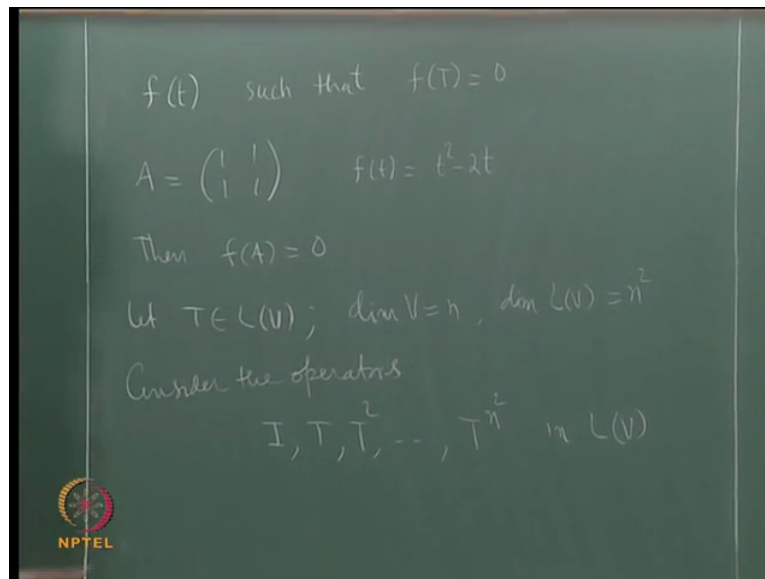 f(t) such that f(T) = 0
A = (1 1
1 1) f(t) = t² - 2t
Then f(A) = 0
Let T ∈ L(V); dim V = n, dim L(V) = n²
Consider the operators
I, T, T², --, T^{n²} in L(V)
NPTEL